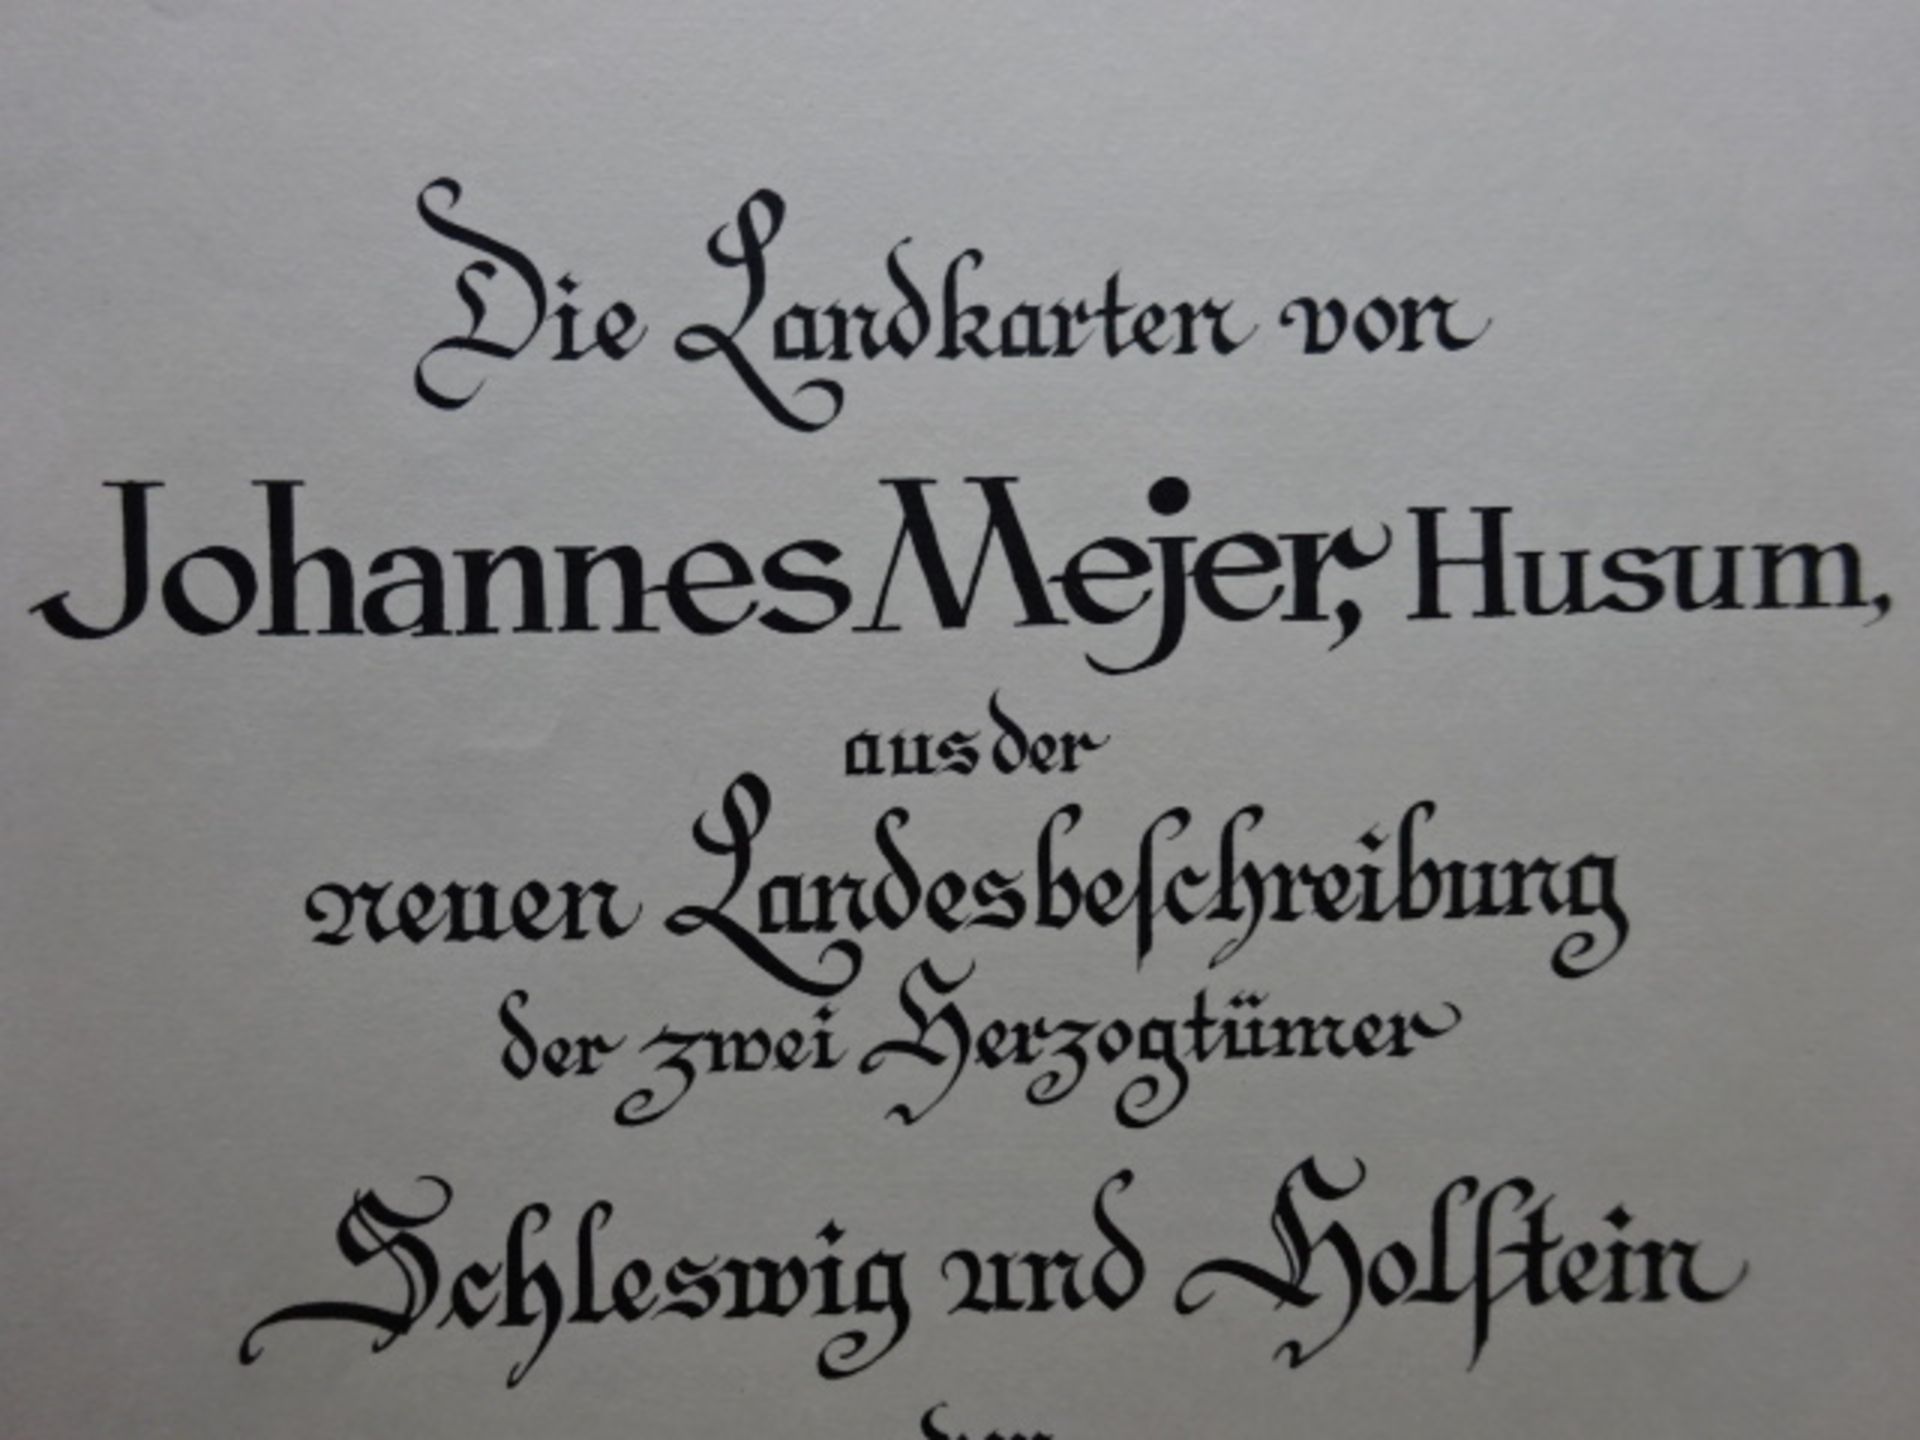 Die Landkarten von
Johannes Mejer, Husum,
aus der
neuen Landesbeſchreibung
der zwei Herzogtümer
Schleswig und Holſtein